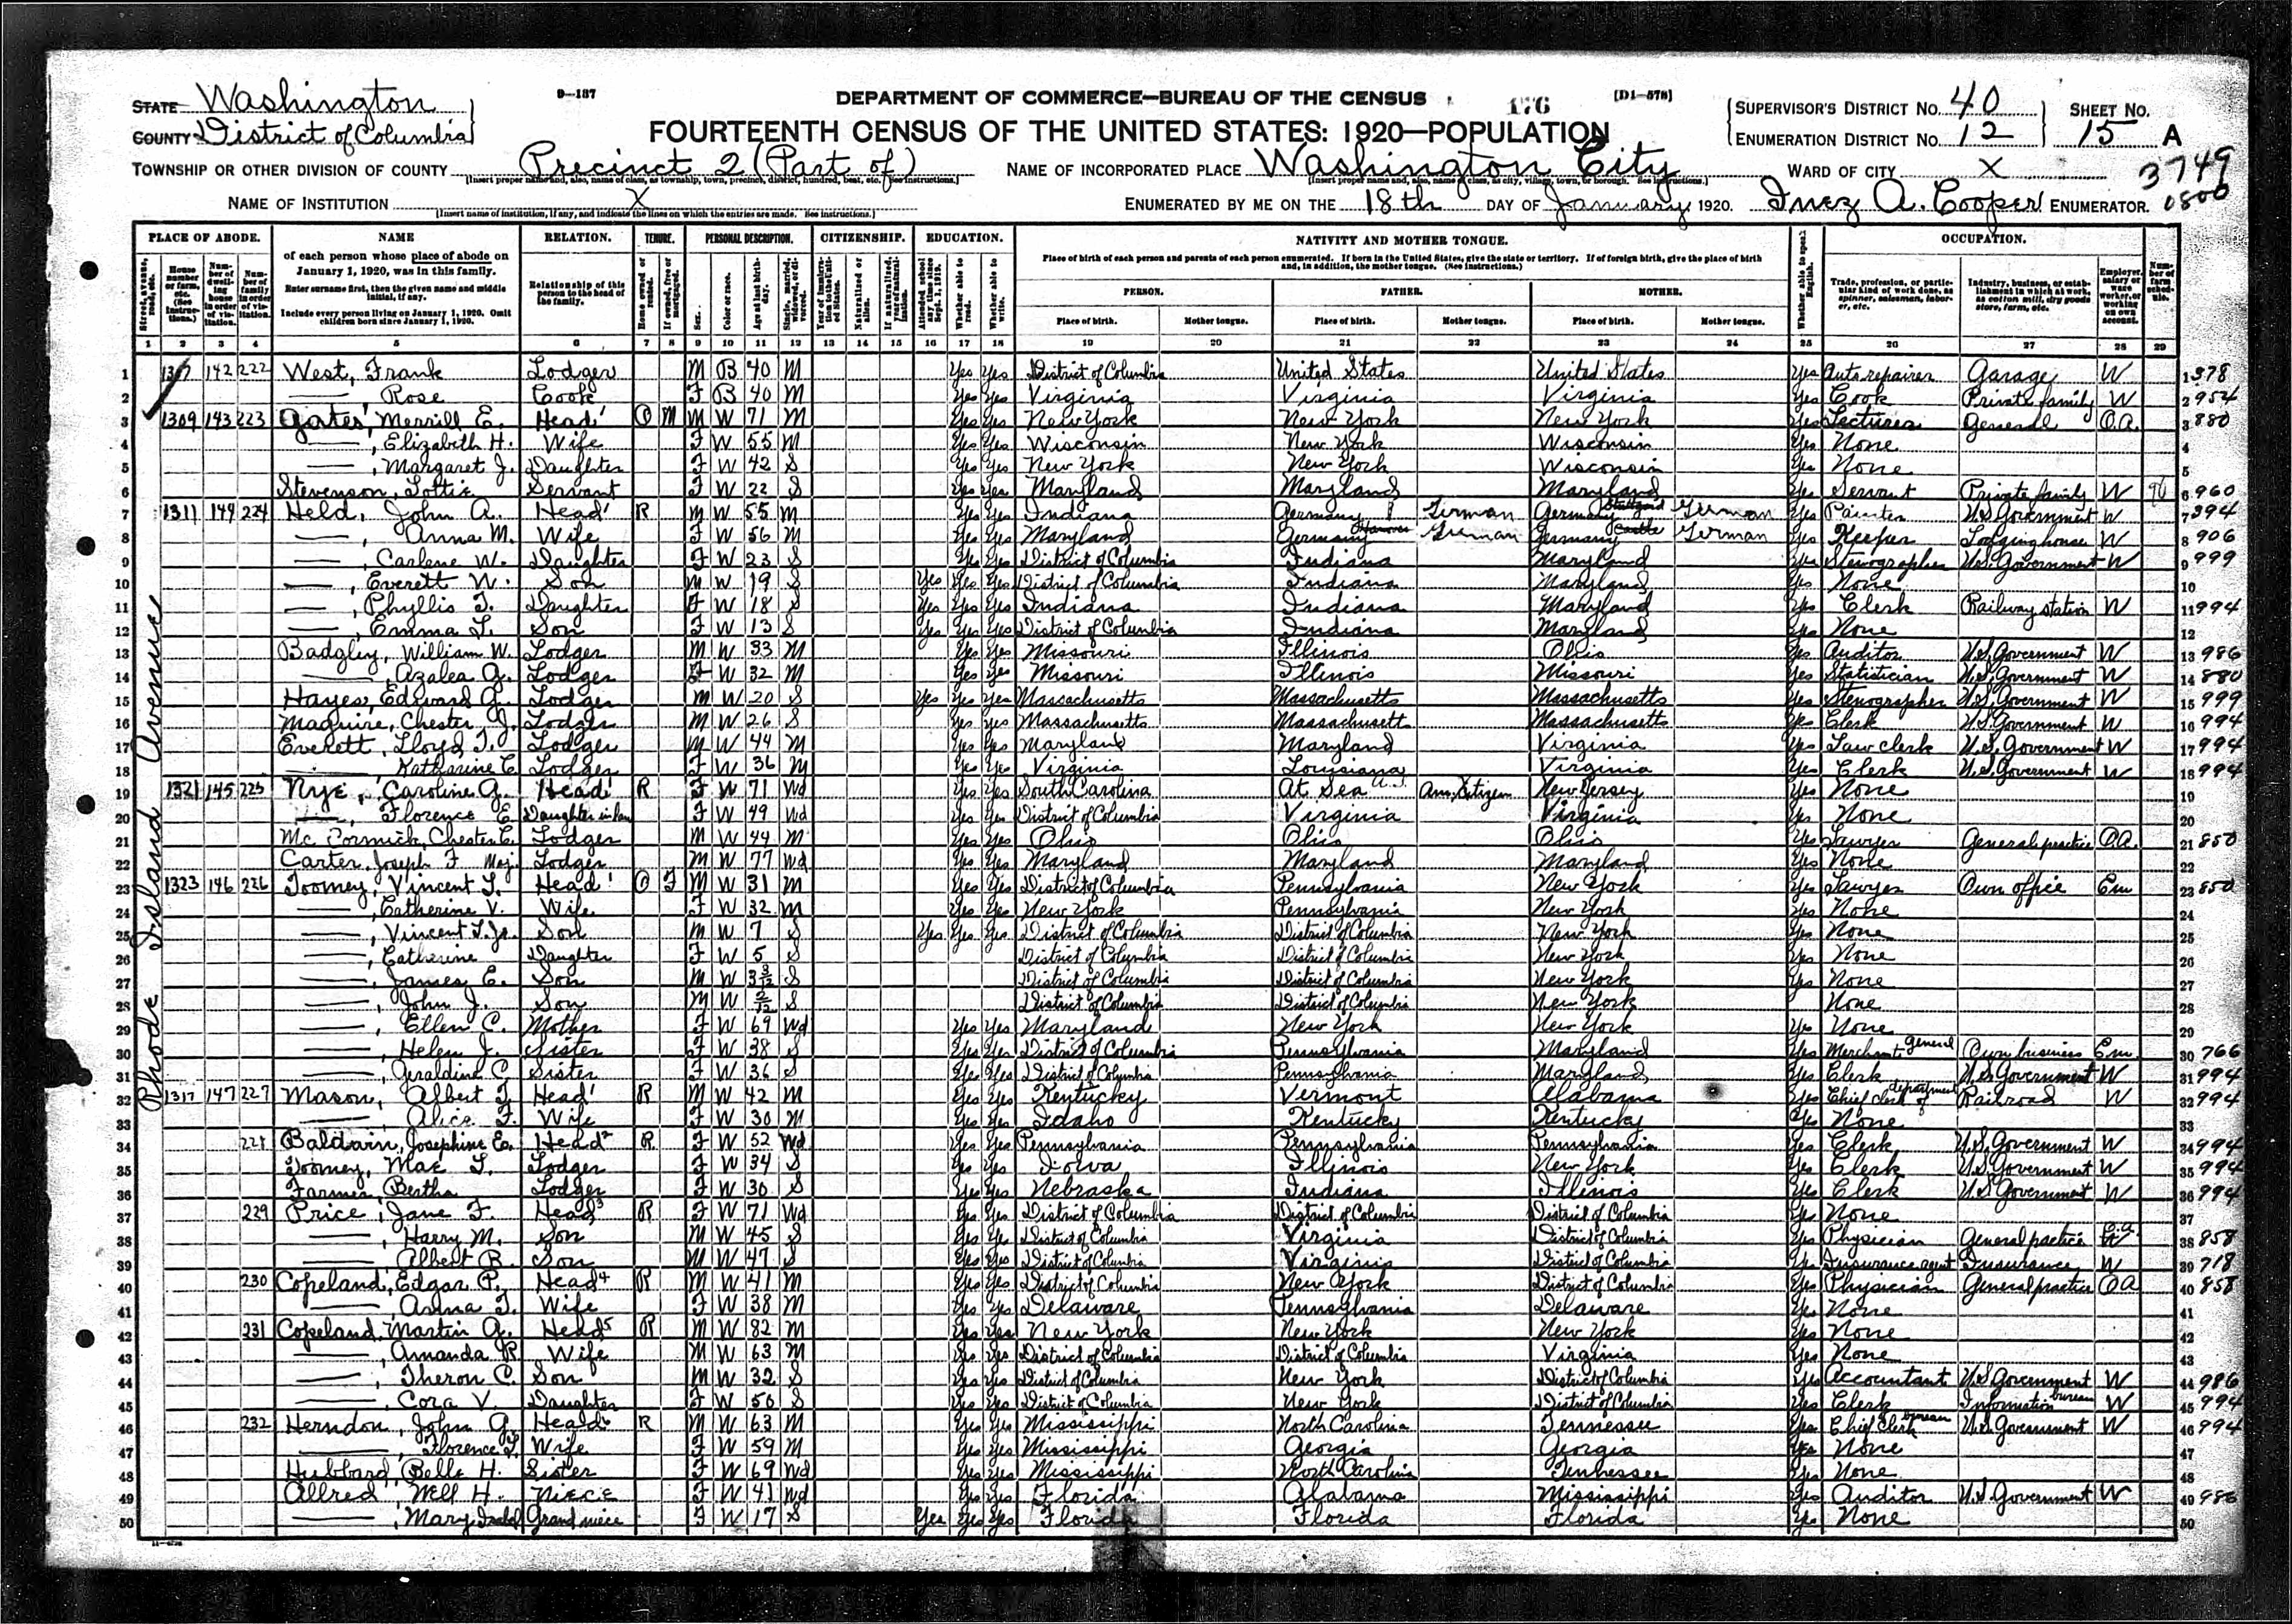 STATE Washington
COUNTY District of Columbia
9-137
DEPARTMENT OF COMMERCE—BUREAU OF THE CENSUS
176
[D1-578]
FOURTEENTH CENSUS OF THE UNITED STATES: 1920—POPULATION
SUPERVISOR'S DISTRICT NO. 40
ENUMERATION DISTRICT NO. 12
SHEET NO. 15 A
TOWNSHIP OR OTHER DIVISION OF COUNTY Precinct 2 (Part of)
NAME OF INCORPORATED PLACE Washington City
WARD OF CITY X
3749
0800
NAME OF INSTITUTION X
[Insert name of institution, if any, and indicate the lines on which the entries are made. See instructions.]
ENUMERATED BY ME ON THE 18th DAY OF January 1920. Inez A. Cooper ENUMERATOR.
PLACE OF ABODE. NAME RELATION. TENURE. PERSONAL DESCRIPTION. CITIZENSHIP. EDUCATION. NATIVITY AND MOTHER TONGUE. OCCUPATION.
of each person whose place of abode on January 1, 1920, was in this family.
Enter surname first, then the given name and middle initial, if any.
Include every person living on January 1, 1920. Omit children born since January 1, 1920.
Relationship of this person to the head of the family.
Place of birth of each person and parents of each person enumerated. If born in the United States, give the state or territory. If of foreign birth, give the place of birth and, in addition, the mother tongue. (See instructions.)
PERSON. FATHER. MOTHER.
Place of birth. Mother tongue. Place of birth. Mother tongue. Place of birth. Mother tongue.
Trade, profession, or particular kind of work done, as spinner, salesman, laborer, etc.
Industry, business, or establishment in which at work, as cotton mill, dry goods store, farm, etc.
Employer, salary or wage worker, or working on own account.
1 2 3 4 5 6 7 8 9 10 11 12 13 14 15 16 17 18 19 20 21 22 23 24 25 26 27 28 29
Rhode Island Avenue
1 1307 142 222 West, Frank Lodger M B 40 M Yes Yes District of Columbia United States United States Yes Auto repairer Garage W 1 378
2 — Rose Cook F B 40 M Yes Yes Virginia Virginia Virginia Yes Cook Private family W 2 954
3 1309 143 223 Gates, Merrill E. Head 1 O M M W 71 M Yes Yes New York New York New York Yes Lecturer General O.A. 3 880
4 —, Elizabeth H. Wife F W 55 M Yes Yes Wisconsin New York Wisconsin Yes None 4
5 —, Margaret J. Daughter F W 42 S Yes Yes New York New York Wisconsin Yes None 5
6 Stevenson, Lottie Servant F W 22 S Yes Yes Maryland Maryland Maryland Yes Servant Private family W 6 960
7 1311 144 224 Held, John A. Head 1 R M W 55 M Yes Yes Indiana Germany German Germany German Yes Painter U.S. Government W 7 394
8 —, Anna M. Wife F W 56 M Yes Yes Maryland Germany Hanover German Germany German Yes Keeper Lodging house W 8 906
9 —, Carlene W. Daughter F W 23 S Yes Yes District of Columbia Indiana Maryland Yes Stenographer U.S. Government W 9 999
10 —, Everett W. Son M W 19 S Yes Yes Yes District of Columbia Indiana Maryland Yes None 10
11 —, Phyllis F. Daughter F W 18 S Yes Yes Yes Indiana Indiana Maryland Yes Clerk Railway station W 11 994
12 —, Emma L. Son F W 13 S Yes Yes Yes District of Columbia Indiana Maryland Yes None 12
13 Badgley, William W. Lodger M W 33 M Yes Yes Missouri Illinois Ohio Yes Auditor U.S. Government W 13 986
14 —, Azalea G. Lodger F W 32 M Yes Yes Missouri Illinois Missouri Yes Statistician U.S. Government W 14 880
15 Hayes, Edward G. Lodger M W 20 S Yes Yes Yes Massachusetts Massachusetts Massachusetts Yes Stenographer U.S. Government W 15 999
16 Maguire, Chester J. Lodger M W 26 S Yes Yes Massachusetts Massachusett Massachusetts Yes Clerk U.S. Government W 16 994
17 Everett, Lloyd T. Lodger M W 44 M Yes Yes Maryland Maryland Virginia Yes Law clerk U.S. Government W 17 994
18 —, Katharine C. Lodger F W 36 M Yes Yes Virginia Louisiana Virginia Yes Clerk U.S. Government W 18 994
19 1321 145 225 Nye, Caroline G. Head R F W 71 Wd Yes Yes South Carolina At Sea U.S. Am. Citizen New Jersey Yes None 19
20 —, Florence E. Daughter in law F W 49 Wd Yes Yes District of Columbia Virginia Virginia Yes None 20
21 Mc Cormick, Chester C. Lodger M W 44 M Yes Yes Ohio Ohio Ohio Yes Lawyer General practice O.A. 21 850
22 Carter, Joseph F. Maj. Lodger M W 77 Wd Yes Yes Maryland Maryland Maryland Yes None 22
23 1323 146 226 Toomey, Vincent L. Head 1 O F M W 31 M Yes Yes District of Columbia Pennsylvania New York Yes Lawyer Own office Em 23 850
24 —, Catherine V. Wife F W 32 M Yes Yes New York Pennsylvania New York Yes None 24
25 —, Vincent L. Jr. Son M W 7 S Yes Yes Yes District of Columbia District of Columbia New York Yes None 25
26 —, Catherine Daughter F W 5 S District of Columbia District of Columbia New York Yes None 26
27 —, James E. Son M W 3 3/12 S District of Columbia District of Columbia New York Yes None 27
28 —, John J. Son M W 2/12 S District of Columbia District of Columbia New York None 28
29 —, Ellen C. Mother F W 69 Wd Yes Yes Maryland New York New York Yes None 29
30 —, Helen J. Sister F W 38 S Yes Yes District of Columbia Pennsylvania Maryland Yes Merchant general Own business Em. 30 766
31 —, Geraldine C. Sister F W 36 S Yes Yes District of Columbia Pennsylvania Maryland Yes Clerk U.S. Government W 31 994
32 1317 147 227 Mason, Albert T. Head 1 R M W 42 M Yes Yes Kentucky Vermont Alabama Yes Chief clerk of department Railroad W 32 994
33 —, Alice F. Wife F W 30 M Yes Yes Idaho Kentucky Kentucky Yes None 33
34 228 Baldwin, Josephine E. Head 2 R F W 52 Wd Yes Yes Pennsylvania Pennsylvania Pennsylvania Yes Clerk U.S. Government W 34 994
35 Toomey, Mae L. Lodger F W 34 S Yes Yes Iowa Illinois New York Yes Clerk U.S. Government W 35 994
36 Farmer, Bertha Lodger F W 30 S Yes Yes Nebraska Indiana Illinois Yes Clerk U.S. Government W 36 994
37 229 Price, Jane F. Head 3 R F W 71 Wd Yes Yes District of Columbia District of Columbia District of Columbia Yes None 37
38 —, Harry M. Son M W 45 S Yes Yes District of Columbia Virginia District of Columbia Yes Physician General practice O.A. 38 858
39 —, Albert B. Son M W 47 S Yes Yes District of Columbia Virginia District of Columbia Yes Insurance agent Insurance W 39 718
40 230 Copeland, Edgar P. Head 4 R M W 41 M Yes Yes District of Columbia New York District of Columbia Yes Physician General practice O A 40 858
41 —, Anna T. Wife F W 38 M Yes Yes Delaware Pennsylvania Delaware Yes None 41
42 231 Copeland, Martin G. Head 5 R M W 82 M Yes Yes New York New York New York Yes None 42
43 —, Amanda R. Wife M W 63 M Yes Yes District of Columbia District of Columbia Virginia Yes None 43
44 —, Theron C. Son M W 32 S Yes Yes District of Columbia New York District of Columbia Yes Accountant U.S. Government W 44 986
45 —, Cora V. Daughter F W 50 S Yes Yes District of Columbia New York District of Columbia Yes Clerk Information bureau W 45 994
46 232 Herndon, John G. Head 6 R M W 63 M Yes Yes Mississippi North Carolina Tennessee Yes Chief Clerk bureau U.S. Government W 46 994
47 —, Florence Wife F W 59 M Yes Yes Mississippi Georgia Georgia Yes None 47
48 Hubbard, Belle H. Sister F W 69 Wd Yes Yes Mississippi North Carolina Tennessee Yes None 48
49 Allred, Nell H. Niece F W 41 Wd Yes Yes Florida Alabama Mississippi Yes Auditor U.S. Government W 49 986
50 —, Mary Isabel Grand niece F W 17 S Yes Yes Yes Florida Florida Florida Yes None 50